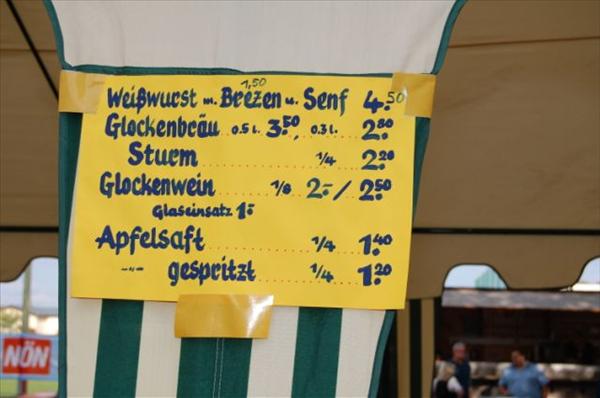 1,50
Weißwurst m. Brezen u. Senf 4.50
Glockenbräu 0.5 l. 3.50, 0.3 l. 2.80
Sturm 1/4 2.20
Glockenwein 1/8 2.-/2.50
Glaseinsatz 1.-
Apfelsaft 1/4 1.40
gespritzt 1/4 1.20
NÖN